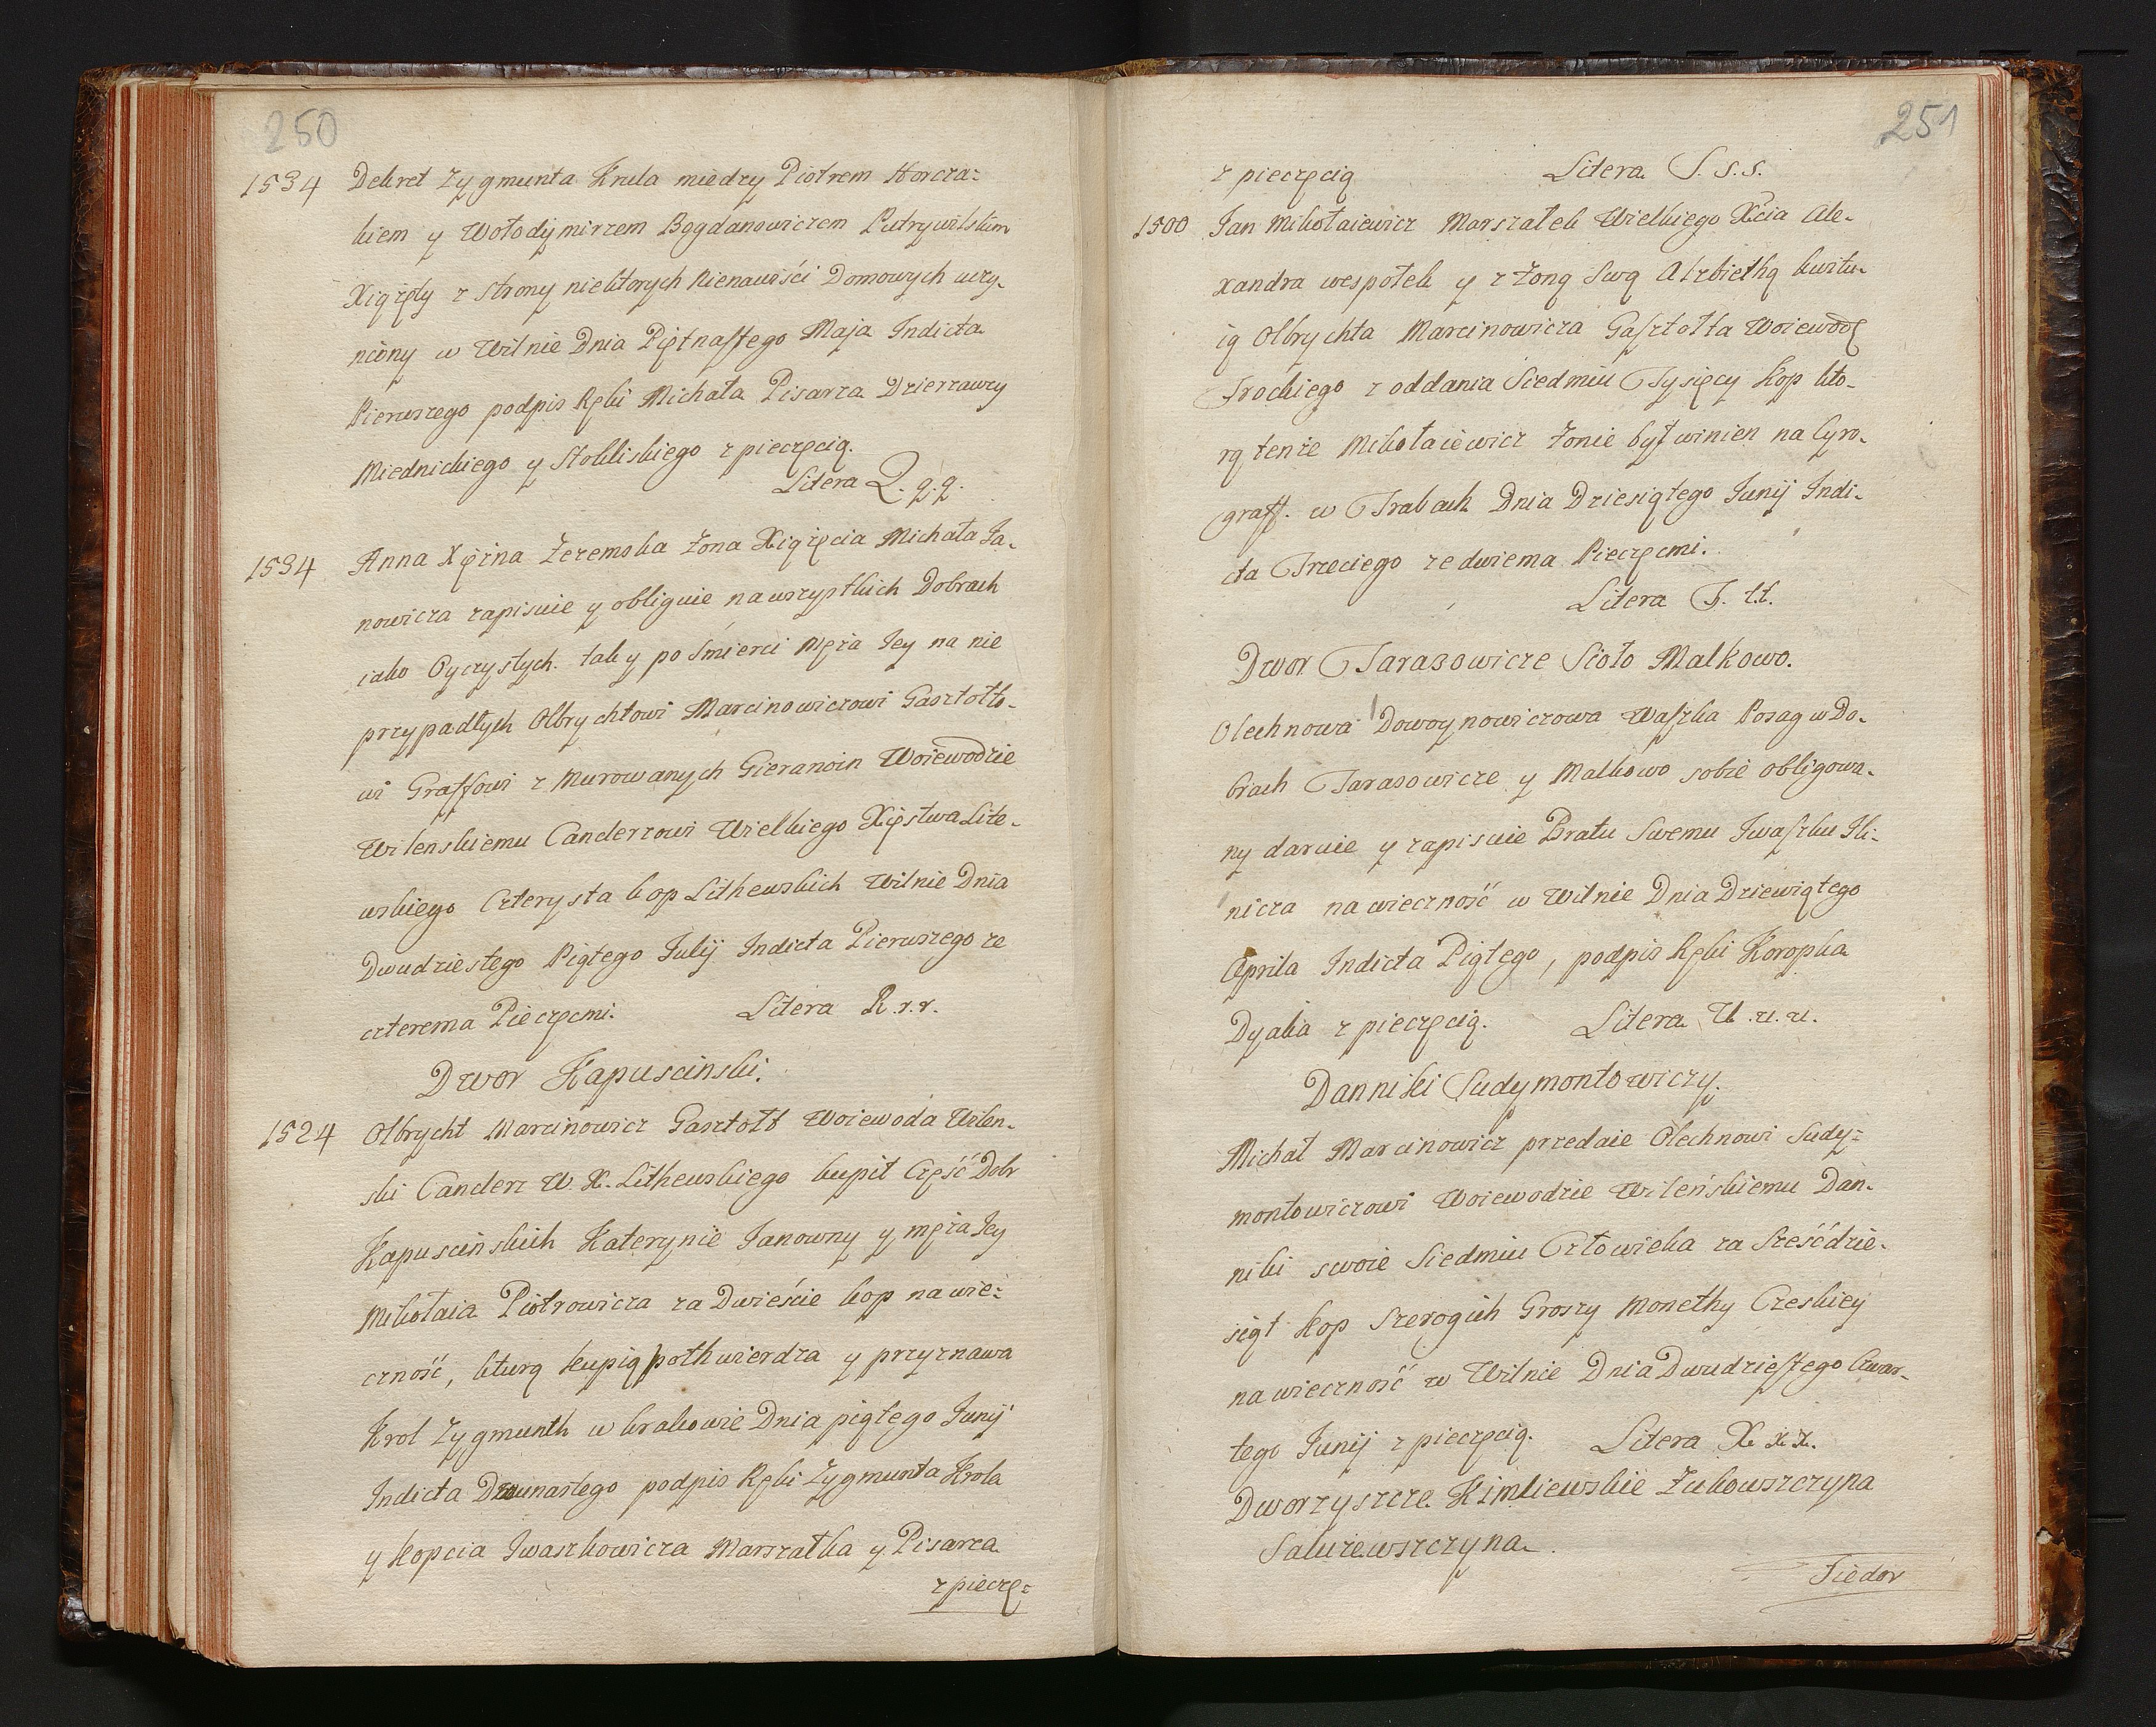 250
1534 Dekret Zygmunta Krula miedzy Piotrem Horcza=
kiem y Wołodymirzem Bogdanowiczem Putrywilskim
Xiążęty z strony niektorych Nienawiści Domowych uczy-
niony w Wilnie Dnia Piętnastego Maja Indicta
Pierwszego podpis Ręki Michała Pisarza Dzierzawcy
Miednickiego y Stokliskiego z pieczęcią.
Litera Q. q. q.
1534 Anna Xęźna Zeremska Zona Xiążęcia Michała Ja-
nowicza zapisuie y obliguie na wszystkich Dobrach
iako Oyczystych. tak y po Smierci Męża Jey na nie
przypadłych Olbrychtowi Marcinowiczowi Gasztołto-
wi Graffowi z Murowanych Gieranoin Woiewodzie
Wilenskiemu Canclerzowi Wielkiego Xięstwa Lite-
wskiego Czterysta kop Lithewskich Wilnie Dnia
Dwudziestego Piątego Julij Indicta Pierwszego ze
czterema Pieczęcmi. Litera R. r. r.
Dwor Kapuscinski.
1524 Olbrycht Marcinowicz Gasztołt Woiewoda Wilen-
ski Canclerz W. X. Lithewskiego kupił Część Dobr
Kapuscinskich Katerynie Janowny y męża Jey
Mikołaia Piotrowicza za Dwieście kop na wie=
czność, kturą kupią pothwierdza y przyznawa
Krol Zygmunth w krakowie Dnia piątego Junij
Indicta Dwunastego podpis Ręki Zygmunta Krola
y Kopcia Iwaszkowicza Marszałka y Pisarza
z pieczę=
251
z pieczęcią Litera S. s. s.
1500 Jan Mikołaiewicz Marszałek Wielkiego Xcia Ale-
xandra wespołek y z Zoną Swą Alzbiethą kwitu-
ią Olbrychta Marcinowicza Gasztołta Woiewodę
Trockiego z oddania Siedmiu Tysięcy Kop kto-
rą tenże Mikołaiewicz Zonie był winien na Cyro-
graff. w Trabach Dnia Dziesiątego Junij Indi-
cta Trzeciego ze dwiema Pieczęcmi.
Litera T. t. t.
Dwor Tarasowicze Sioło Malkowo.
Olechnowa Dowoynowiczowa Waszka Posag w Do-
brach Tarasowicze y Malkowo sobie obligowa-
ny daruie y zapisuie Bratu Swemu Iwaszku Ili-
nicza na wieczność w Wilnie Dnia Dziewiątego
Aprila Indicta Piątego, podpis Ręki Koropka
Dyaka z pieczęcią. Litera U. u. u.
Danniki Sudymontowiczy.
Michał Marcinowicz przedaie Olechnowi Sudy=
montowiczowi Woiewodzie Wileńskiemu Dan-
niki swoie Siedmiu Człowieka za Sześćdzie-
siąt Kop Szerogich Groszy Monethy Czeskiey
na wieczność w Wilnie Dnia Dwudziestego Czwar-
tego Junij z pieczęcią. Litera X. x. x.
Dworzyszcze Kimliewskie Zukowszczyna
Sakuzewszczyna.
Fiedor